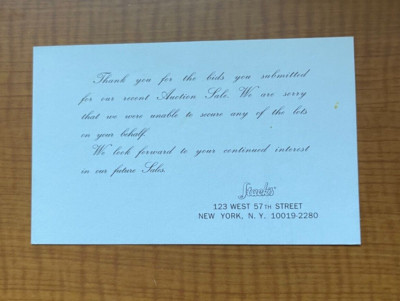 Thank you for the bids you submitted
for our recent Auction Sale. We are sorry
that we were unable to secure any of the lots
on your behalf.
We look forward to your continued interest
in our future Sales.
Stack's
123 WEST 57TH STREET
NEW YORK, N. Y. 10019-2280